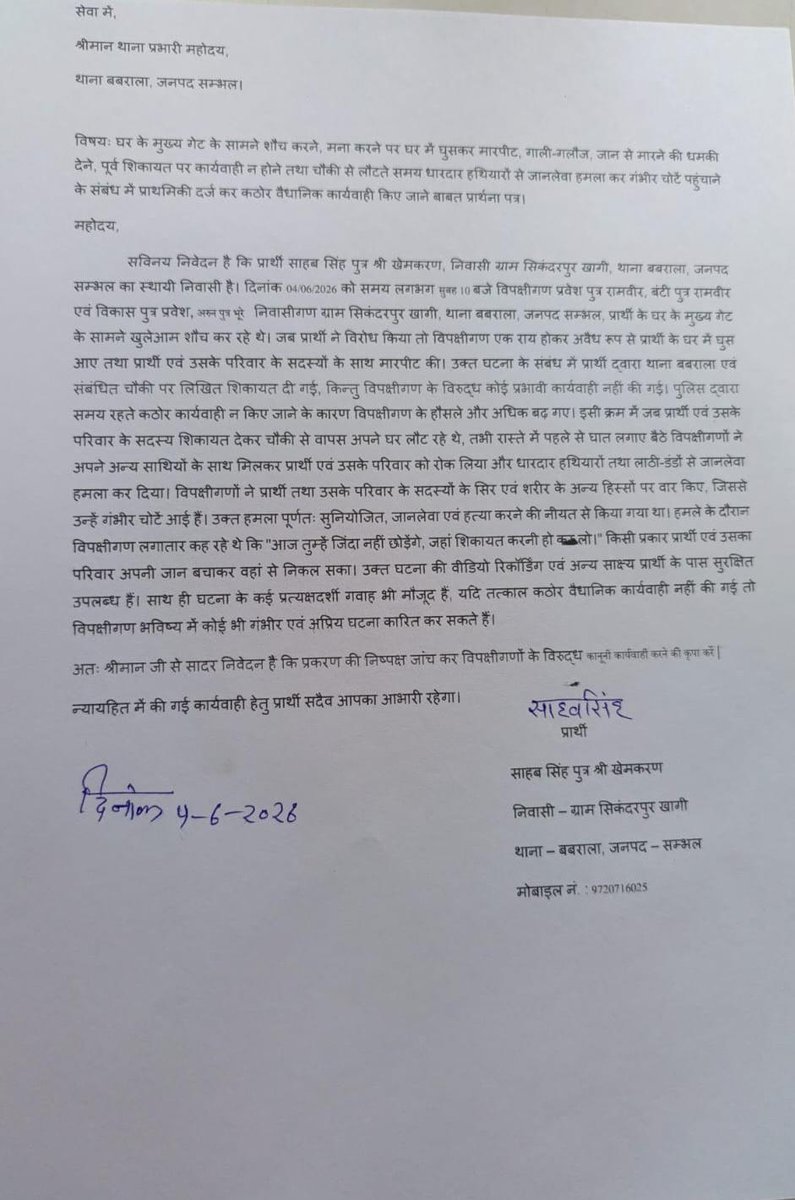 सेवा में,
श्रीमान थाना प्रभारी महोदय,
थाना बबराला, जनपद सम्भल।
विषयः घर के मुख्य गेट के सामने शौच करने, मना करने पर घर में घुसकर मारपीट, गाली-गलौज, जान से मारने की धमकी
देने, पूर्व शिकायत पर कार्यवाही न होने तथा चौकी से लौटते समय धारदार हथियारों से जानलेवा हमला कर गंभीर चोटें पहुंचाने
के संबंध में प्राथमिकी दर्ज कर कठोर वैधानिक कार्यवाही किए जाने बाबत प्रार्थना पत्र।
महोदय,
सविनय निवेदन है कि प्रार्थी साहब सिंह पुत्र श्री खेमकरण, निवासी ग्राम सिकंदरपुर खागी, थाना बबराला, जनपद
सम्भल का स्थायी निवासी है। दिनांक 04/06/2026 को समय लगभग सुबह 10 बजे विपक्षीगण प्रवेश पुत्र रामवीर, बंटी पुत्र रामवीर
एवं विकास पुत्र प्रवेश, पुत्र भूरे निवासीगण ग्राम सिकंदरपुर खागी, थाना बबराला, जनपद सम्भल, प्रार्थी के घर के मुख्य गेट
के सामने खुलेआम शौच कर रहे थे। जब प्रार्थी ने विरोध किया तो विपक्षीगण एक राय होकर अवैध रूप से प्रार्थी के घर में घुस
आए तथा प्रार्थी एवं उसके परिवार के सदस्यों के साथ मारपीट की। उक्त घटना के संबंध में प्रार्थी द्वारा थाना बबराला एवं
संबंधित चौकी पर लिखित शिकायत दी गई, किन्तु विपक्षीगण के विरुद्ध कोई प्रभावी कार्यवाही नहीं की गई। पुलिस द्वारा
समय रहते कठोर कार्यवाही न किए जाने के कारण विपक्षीगण के हौसले और अधिक बढ़ गए। इसी क्रम में जब प्रार्थी एवं उसके
परिवार के सदस्य शिकायत देकर चौकी से वापस अपने घर लौट रहे थे, तभी रास्ते में पहले से घात लगाए बैठे विपक्षीगणों ने
अपने अन्य साथियों के साथ मिलकर प्रार्थी एवं उसके परिवार को रोक लिया और धारदार हथियारों तथा लाठी-डंडों से जानलेवा
हमला कर दिया। विपक्षीगणों ने प्रार्थी तथा उसके परिवार के सदस्यों के सिर एवं शरीर के अन्य हिस्सों पर वार किए, जिससे
उन्हें गंभीर चोटें आई हैं। उक्त हमला पूर्णतः सुनियोजित, जानलेवा एवं हत्या करने की नीयत से किया गया था। हमले के दौरान
विपक्षीगण लगातार कह रहे थे कि "आज तुम्हें जिंदा नहीं छोड़ेंगे, जहां शिकायत करनी हो लो।" किसी प्रकार प्रार्थी एवं उसका
परिवार अपनी जान बचाकर वहां से निकल सका। उक्त घटना की वीडियो रिकॉर्डिंग एवं अन्य साक्ष्य प्रार्थी के पास सुरक्षित
उपलब्ध हैं। साथ ही घटना के कई प्रत्यक्षदर्शी गवाह भी मौजूद हैं, यदि तत्काल कठोर वैधानिक कार्यवाही नहीं की गई तो
विपक्षीगण भविष्य में कोई भी गंभीर एवं अप्रिय घटना कारित कर सकते हैं।
अतः श्रीमान जी से सादर निवेदन है कि प्रकरण की निष्पक्ष जांच कर विपक्षीगणों के विरुद्ध कानूनी कार्यवाही करने की कृपा करें|
न्यायहित में की गई कार्यवाही हेतु प्रार्थी सदैव आपका आभारी रहेगा।
साहवसिंह
प्रार्थी
साहब सिंह पुत्र श्री खेमकरण
दिनांक 4-6-2026
निवासी – ग्राम सिकंदरपुर खागी
थाना – बबराला, जनपद – सम्भल
मोबाइल नं. : 9720716025